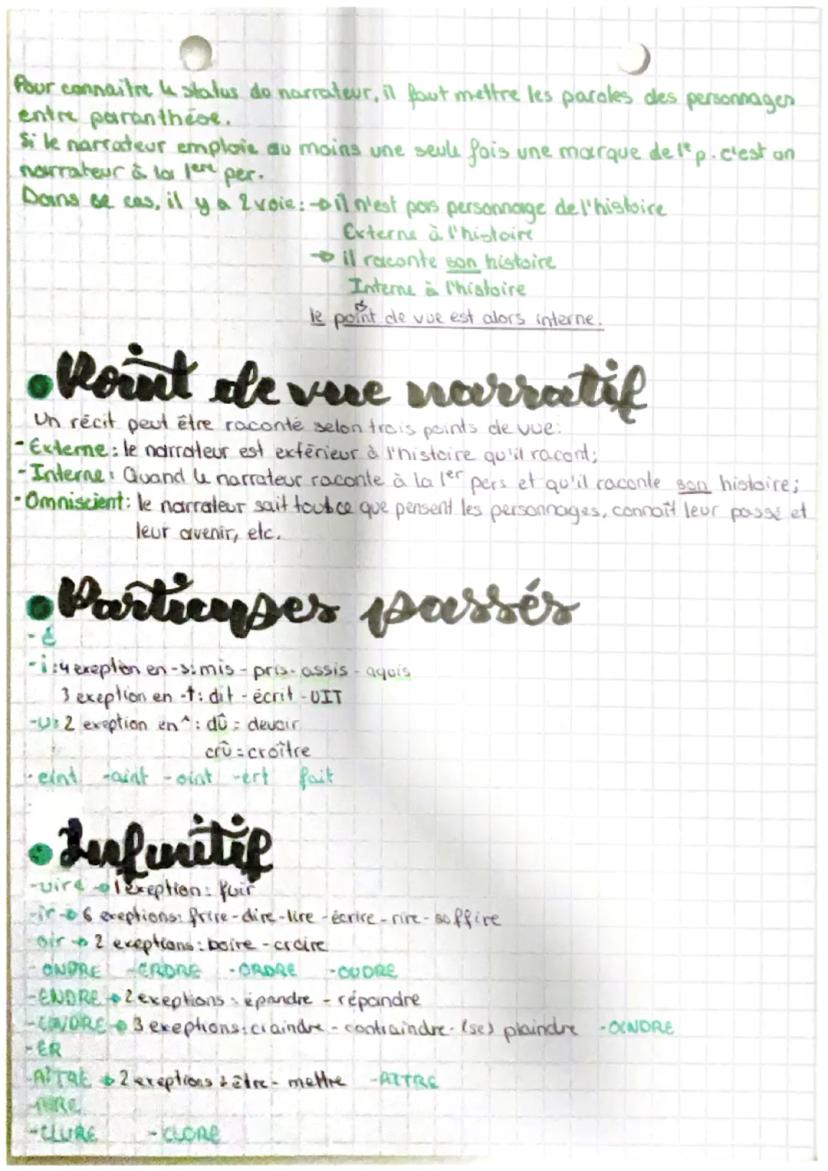 Pour connaître le status du narrateur, il faut mettre les paroles des personnages
entre paranthèse.
Si le narrateur emploie au moins une seule fois une marque de 1re p. c'est un
narrateur à la 1ere per.
Dans ce cas, il y a 2 voie: → il n'est pas personnage de l'histoire
Externe à l'histoire
→ il raconte son histoire
Interne à l'histoire
le point de vue est alors interne.
Point de vue narratif
Un récit peut être raconté selon trois points de vue:
- Externe: le narrateur est extérieur à l'histoire qu'il racont;
- Interne: Quand le narrateur raconte à la 1er pers et qu'il raconte son histoire;
- Omniscient: le narrateur sait tout ce que pensent les personnages, connaît leur passé et
leur avenir, etc.
Participes passés
- é
- i: 4 exeption en -s: mis - pris - assis - aquis
3 exeption en -t: dit - écrit - UIT
- u: 2 exeption en ^: dû = devoir
crû = croître
- eint -aint -oint -ert fait
Infinitif
- uire → 1 exeption: fuir
- ir → 6 exeptions: frire - dire - lire - écrire - rire - suffire
- oir → 2 exeptions: boire - croire
- ONDRE - ERDRE - ORDRE - OUDRE
- ENDRE → 2 exeptions: épandre - répandre
- EINDRE → 3 exeptions: craindre - contraindre - (se) plaindre - OINDRE
- ER
- AÎTRE → 2 exeptions: être - mettre - ATTRE
- AIRE
- CLURE - CLORE